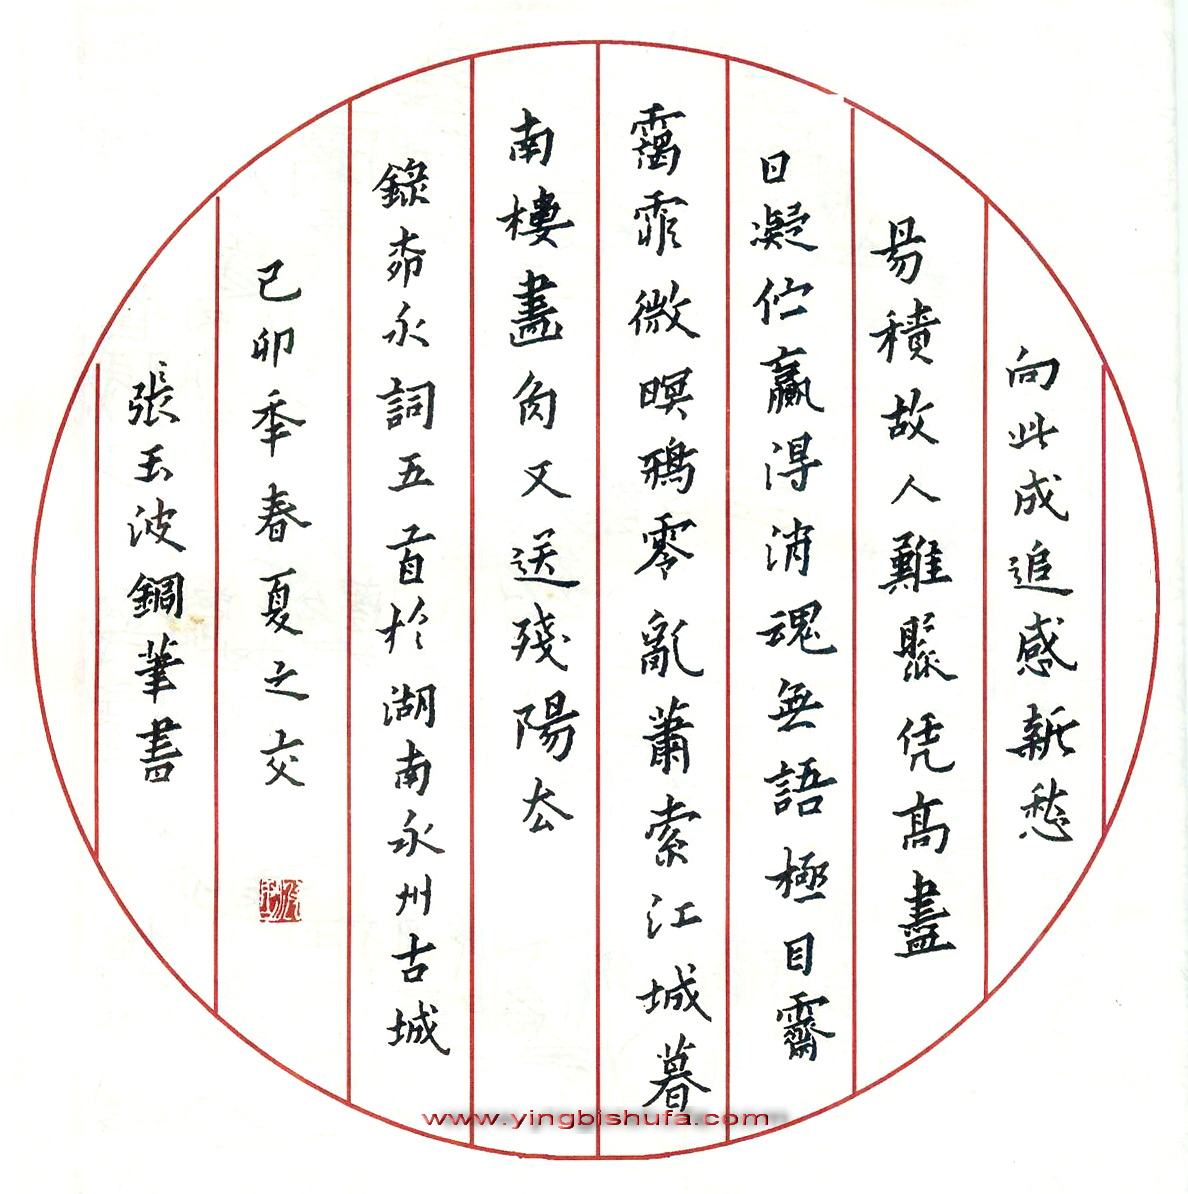 向此成追感新愁
易積故人難聚凭高盡
日凝佇贏得消魂無語極目霽
靄霏微暝鴉零亂蕭索江城暮
南樓畫角又送殘陽去
錄柳永詞五首於湖南永州古城
己卯季春夏之交
張玉波鋼筆書
www.yingbishufa.com